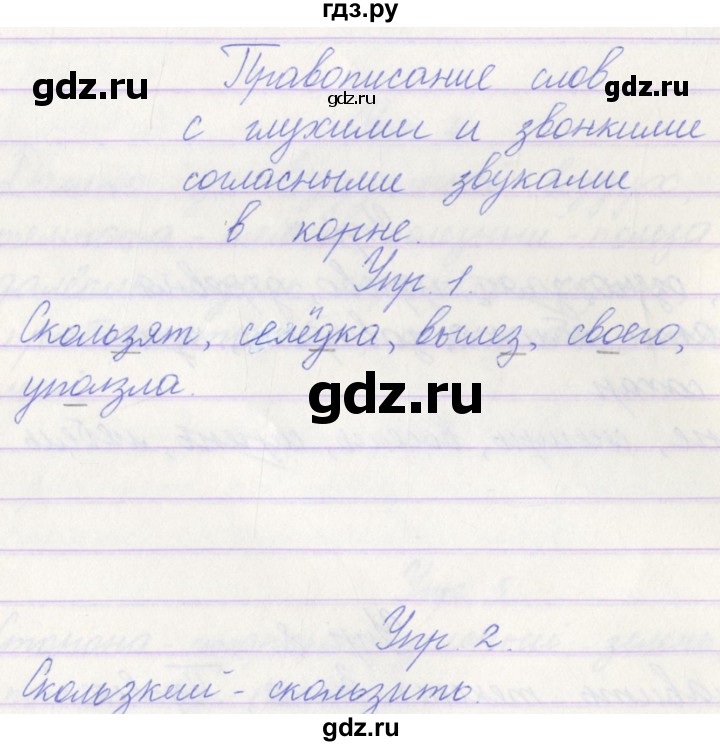 гдз.ру
gdz.ru gdz.ru
Правописание слов
gdz.ru
с глухими и звонкими
согласными звуками
в корне.
Упр. 1.
Скользят, селёдка, вылез, своего,
уползла.
gdz.ru
Упр. 2.
gdz.ru gdz.ru
Скользкий - скользить.
gdz.ru